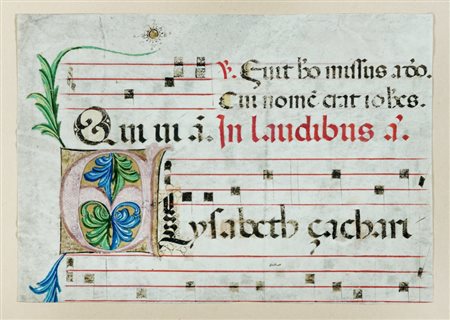 ℣. Fuit hõ missus a deo.
Cui nomẽ erat iohẽs.
In laudibus añ.
Elysabeth çachari